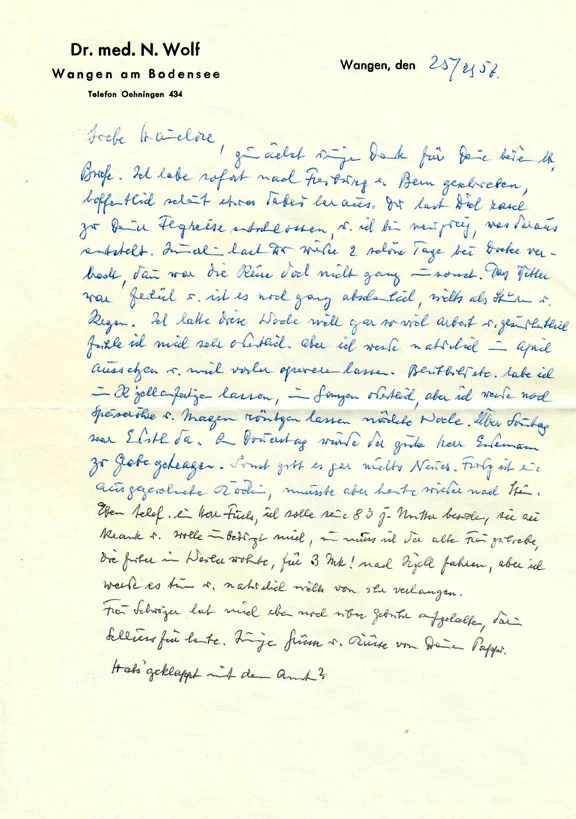 Dr. med. N. Wolf
Wangen am Bodensee
Telefon Oehningen 434
Wangen, den 25/2 56.
Liebe Hannelore, zunächst innige Dank für Deine beiden
Briefe. Ich habe sofort nach Freiburg u. Bern geschrieben,
hoffentlich schaut etwas dabei heraus. Du hast Dich rasch
zu Deiner entschlossen, u. ich bin neugierig, was daraus
entsteht. hast Du wieder 2 schöne Tage bei verbracht,
dann war die Reise doch nicht ganz umsonst. Das Wetter
war u. ist es noch ganz abscheulich, nichts als Sturm u.
Regen. Ich hatte diese Woche nicht gar so viel Arbeit u. gesundheitlich
fühle ich mich sehr ordentlich. aber ich werde natürlich im April
aussetzen u. mich vorher operieren lassen. Blutbild etc. habe ich
in R'zell anfertigen lassen, im Ganzen ordentlich, aber ich werde noch
Speiseröhre u. Magen röntgen lassen nächste Woche. Über Sonntag
war Edith da. Am Donnerstag wurde der gute Herr
zu Grabe getragen. Sonst gibt es gar nichts Neues. ist eine
ausgezeichnete Köchin, musste aber heute wieder nach
Eben telef. ein Herr Fuchs, ich solle seine 83 j. Mutter besuchen, sie sei
krank u. wolle unbedingt mich, nun muss ich der alte Frau zuliebe,
die früher in wohnte, für 3 Mk! nach fahren, aber ich
werde es tun u. natürlich nichts von ihr verlangen.
Frau hat mich eben noch über Gebühr aufgehalten, darum
Schluss für heute. Innige Grüsse u. Küsse von Deinem Pappi.
Hat's geklappt mit dem Amt?